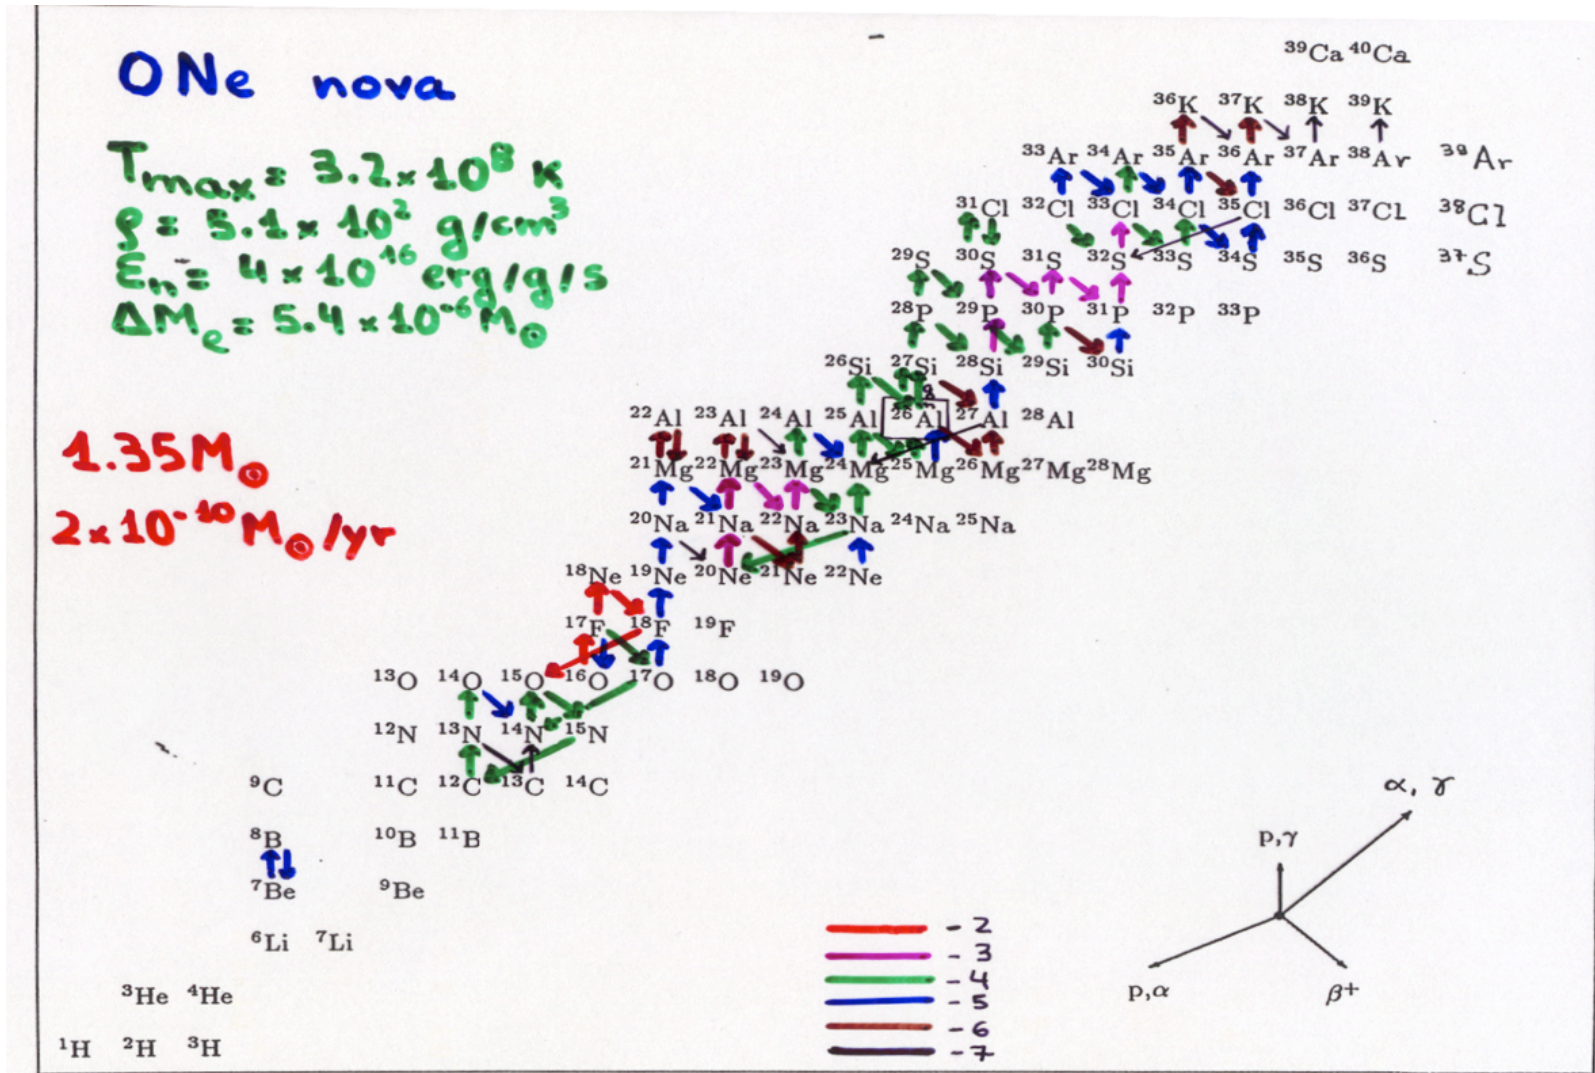 ONe nova
Tmax = 3.2 × 10⁸ K
ρ = 5.1 × 10² g/cm³
εn = 4 × 10¹⁶ erg/g/s
ΔMe = 5.4 × 10⁻⁶ M⊙
1.35 M⊙
2 × 10⁻¹⁰ M⊙/yr
³⁹Ca ⁴⁰Ca
³⁶K ³⁷K ³⁸K ³⁹K
³³Ar ³⁴Ar ³⁵Ar ³⁶Ar ³⁷Ar ³⁸Ar ³⁹Ar
³¹Cl ³²Cl ³³Cl ³⁴Cl ³⁵Cl ³⁶Cl ³⁷Cl ³⁸Cl
²⁹S ³⁰S ³¹S ³²S ³³S ³⁴S ³⁵S ³⁶S ³⁷S
²⁸P ²⁹P ³⁰P ³¹P ³²P ³³P
²⁶Si ²⁷Si ²⁸Si ²⁹Si ³⁰Si
²²Al ²³Al ²⁴Al ²⁵Al ²⁶Al ²⁷Al ²⁸Al
²¹Mg ²²Mg ²³Mg ²⁴Mg ²⁵Mg ²⁶Mg ²⁷Mg ²⁸Mg
²⁰Na ²¹Na ²²Na ²³Na ²⁴Na ²⁵Na
¹⁸Ne ¹⁹Ne ²⁰Ne ²¹Ne ²²Ne
¹⁷F ¹⁸F ¹⁹F
¹³O ¹⁴O ¹⁵O ¹⁶O ¹⁷O ¹⁸O ¹⁹O
¹²N ¹³N ¹⁴N ¹⁵N
⁹C ¹¹C ¹²C ¹³C ¹⁴C
⁸B ¹⁰B ¹¹B
⁷Be ⁹Be
⁶Li ⁷Li
³He ⁴He
¹H ²H ³H
- 2
- 3
- 4
- 5
- 6
- 7
α, γ
p,γ
p,α
β⁺